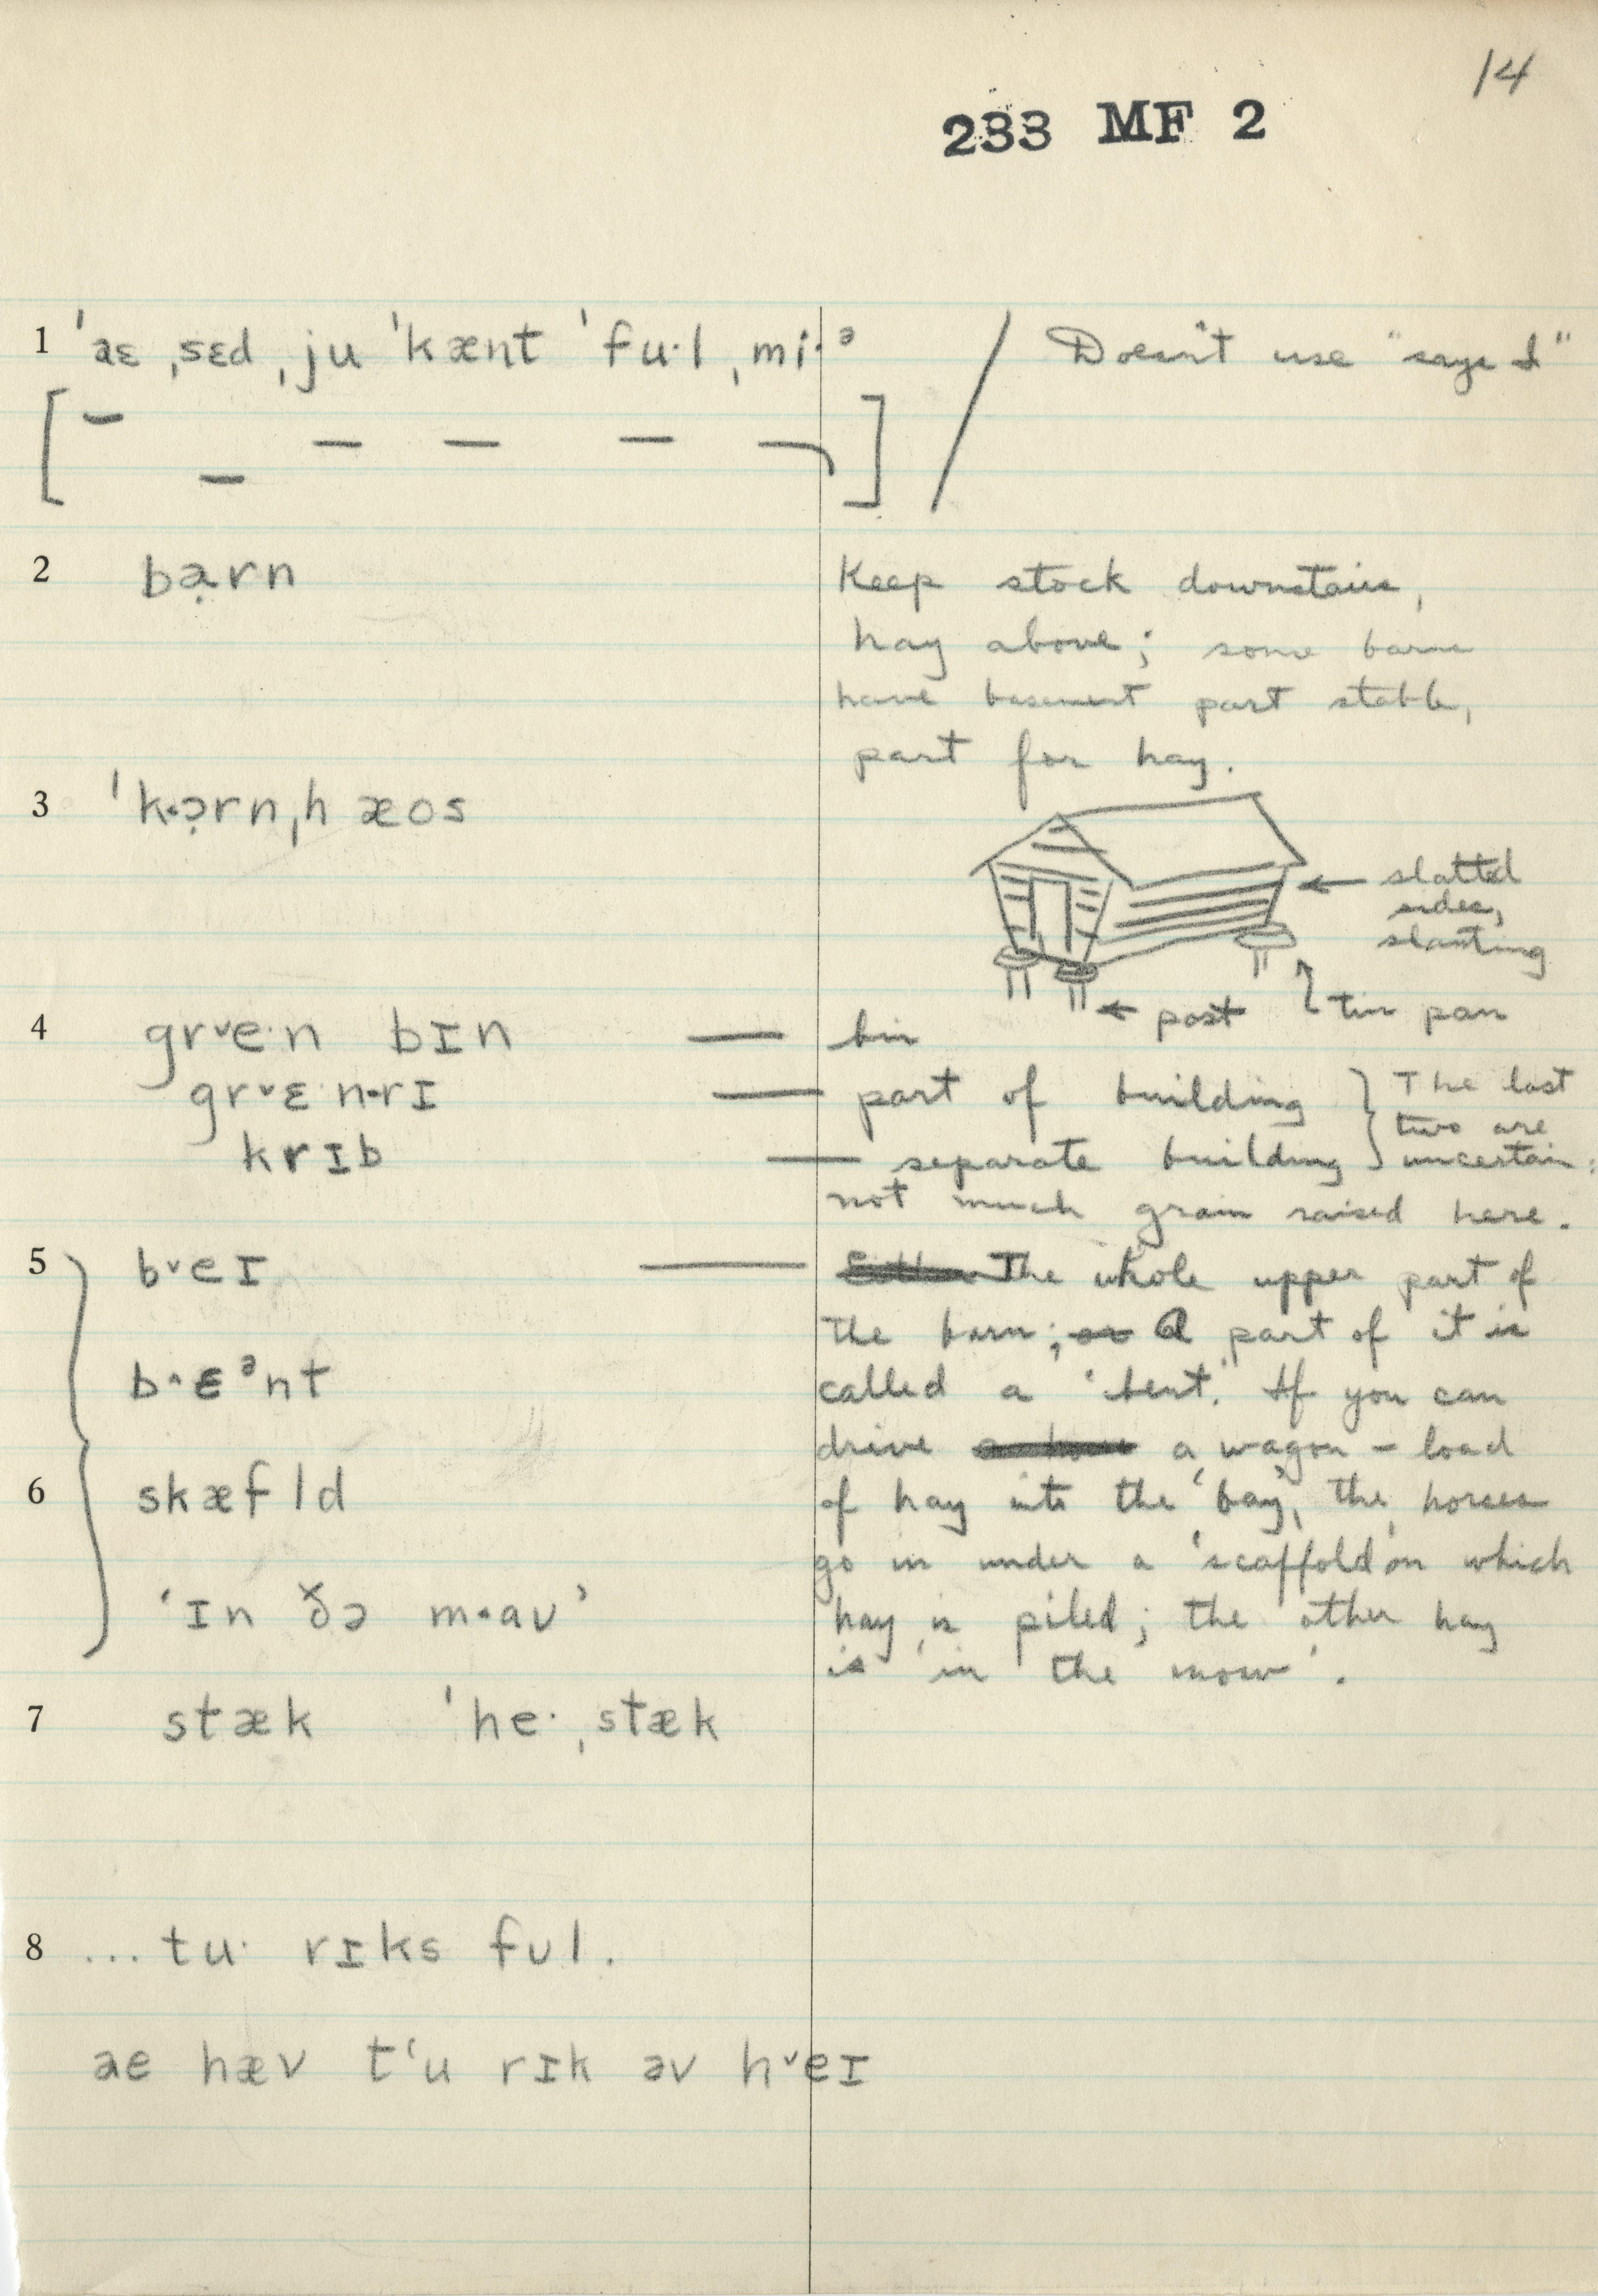 14
233 MF 2
1 ˈaɛ ˌsɛd ˌju ˈkænt ˈfu·l ˌmi·ᵊ / Doesn't use "says I"
2 ba̤rn Keep stock downstairs,
hay above; some barns
have basement part stable,
part for hay.
3 ˈk·ɔ̣rnˌhæos
slatted
sides,
slanting
post tin pan
4 grᵛe·n bɪn — bin
grᵛɛ·n·rɪ — part of building } The last
two are
krɪb — separate building uncertain:
not much grain raised here.
5 bᵛeɪ — The whole upper part of
the barn; or A part of it is
b^ɛᵊnt called a 'bent.' If you can
drive a wagon-load
6 skæfld of hay into the 'bay', the horses
go in under a 'scaffold' on which
'ɪn ðə m·aʊ' hay is piled; the other hay
is 'in the mow'.
7 stæk ˈhe·ˌstæk
8 ...tu· rɪks fʊl.
ae hæv tʻu rɪk əv hᵛeɪ